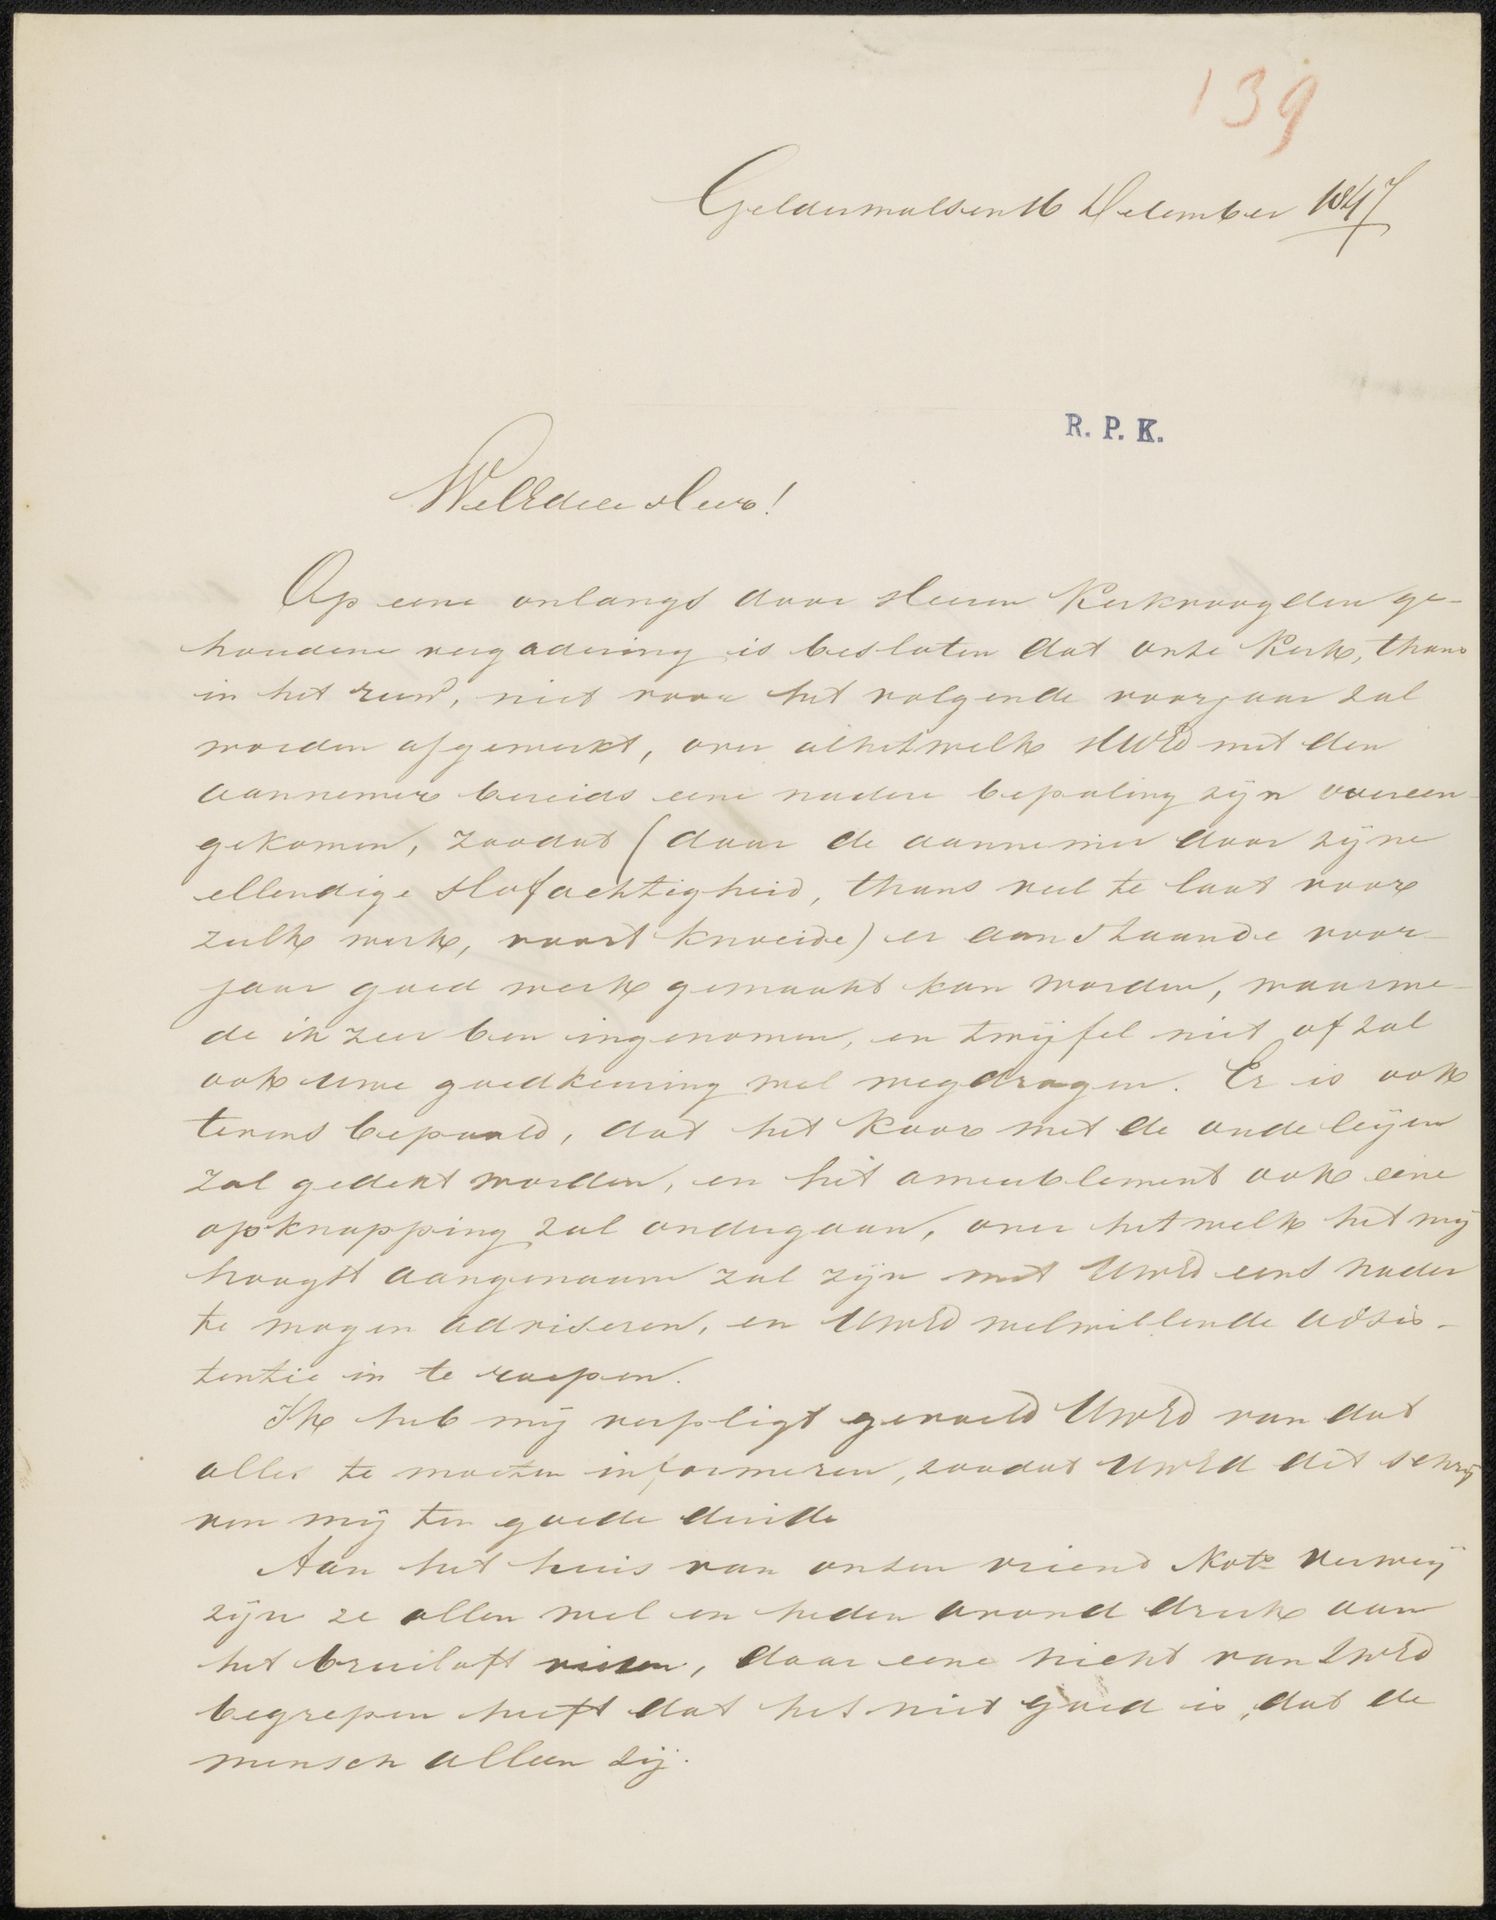 139
Geldermalsen 16 December 1847
R. P. K.
WelEdele Heer!
Op eene onlangs door Heeren Kerkvoogden ge-
houdene vergadering is besloten dat onze Kerk, thans
in het ruw, niet voor het volgende voorjaar zal
worden afgewerkt, over alhetwelk HWEd met den
aannemer bereids eene nadere bepaling zijn overeen
gekomen, zoodat (daar de aannemer door zijne
ellendige slofachtigheid, thans veel te laat voor
zulk werk, voort knoeide) er aanstaande voor-
jaar goed werk gemaakt kan worden, waarme-
de ik zeer ben ingenomen, en twijfel niet of zal
ook uwe goedkeuring wel wegdragen. Er is ook
tevens bepaald, dat het Koor met de oude leijen
zal gedekt worden, en het ameublement ook eene
opknapping zal ondergaan, over hetwelk het mij
hoogst aangenaam zal zijn met UWEd eens nader
te mogen adviseren, en UWEd welwillende adsis-
tentie in te roepen.
Ik heb mij verpligt gevoeld UWEd van dat
alles te moeten informeren, zoodat UWEd dit schrij
ven mij ten goede duide
Aan het huis van onzen vriend Nots Verweij
zijn ze allen wel en heden avond druk aan
het bruiloft vieren, daar eene nicht van ZWEd
begrepen heeft dat het niet goed is, dat de
mensch alleen zij.